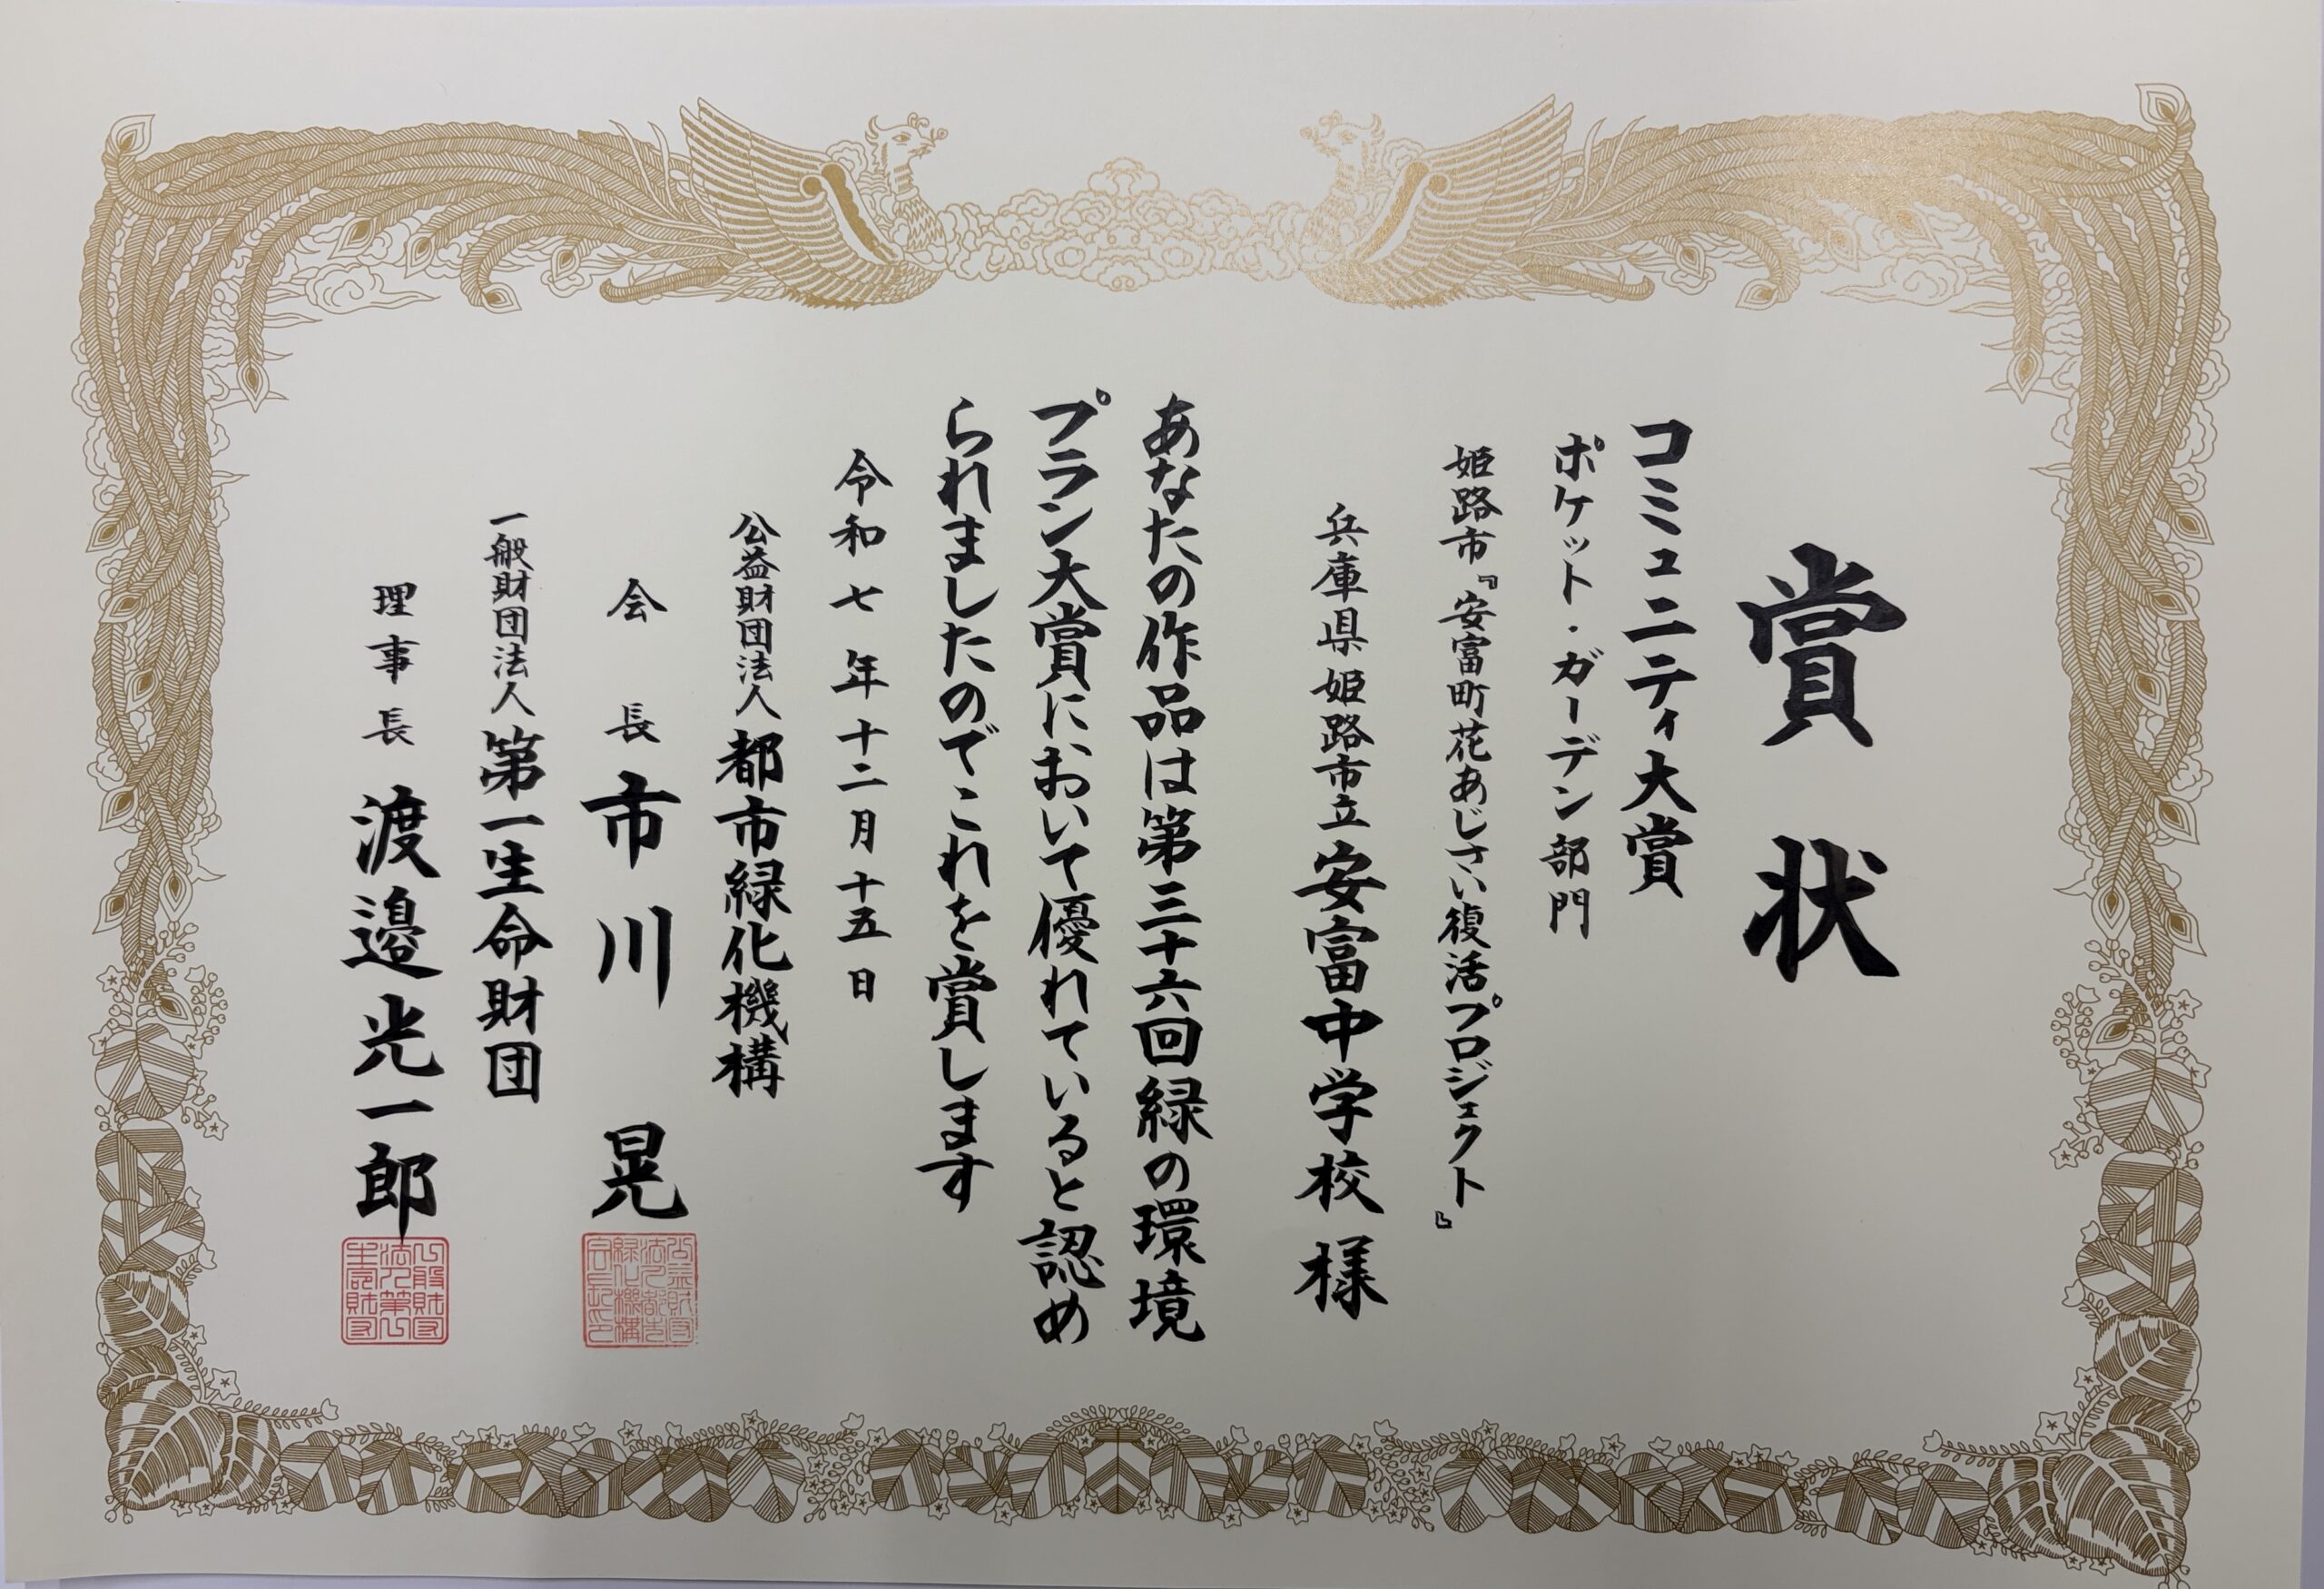 賞状
コミュニティ大賞
ポケット・ガーデン部門
姫路市『安富町花あじさい復活プロジェクト』
兵庫県姫路市立安富中学校様
あなたの作品は第三十六回緑の環境
プラン大賞において優れていると認め
られましたのでこれを賞します
令和七年十二月十五日
公益財団法人都市緑化機構
会長市川晃
一般財団法人第一生命財団
理事長渡邉光一郎